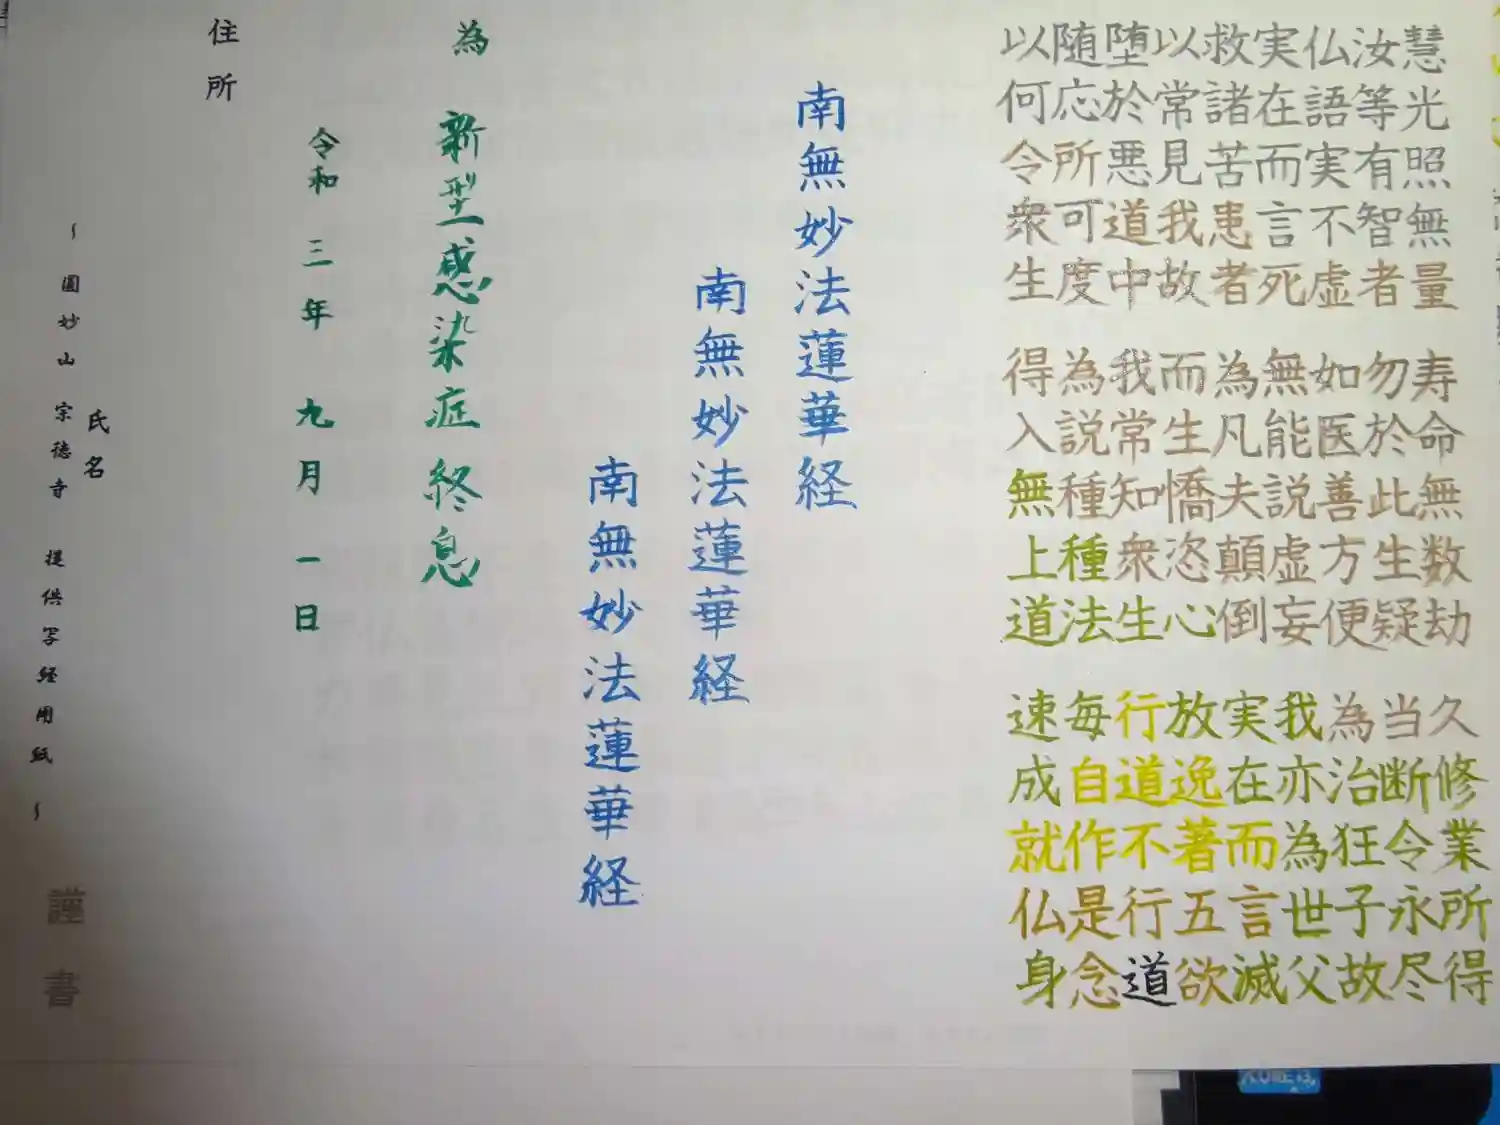 慧光照無量 寿命無数劫 久修業所得
汝等有智者 勿於此生疑 当断令永尽
仏語実不虚 如医善方便 為治狂子故
実在而言死 無能説虚妄 我亦為世父
救諸苦患者 為凡夫顛倒 実在而言滅
以常見我故 而生憍恣心 放逸著五欲
堕於悪道中 我常知衆生 行道不行道
随応所可度 為説種種法 毎自作是念
以何令衆生 得入無上道 速成就仏身
南無妙法蓮華経
南無妙法蓮華経
南無妙法蓮華経
為 新型感染症 終息
令和 三年 九月 一日
住所
氏名
~ 圓妙山 宗徳寺 提供写経用紙 ~
謹書